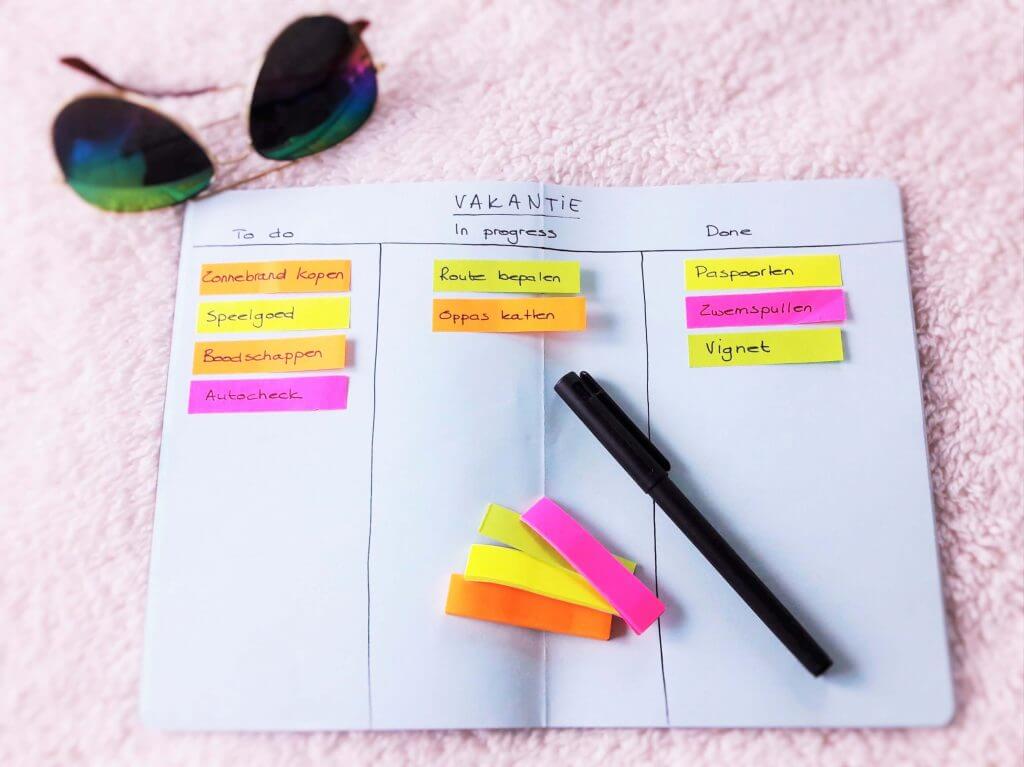 VAKANTIE
To do
Zonnebrand kopen
Speelgoed
Boodschappen
Autocheck
In progress
Route bepalen
Oppas katten
Done
Paspoorten
Zwemspullen
Vignet